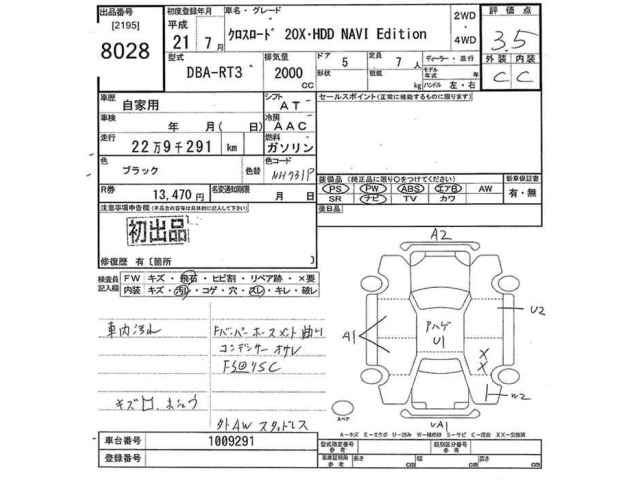 出品番号 初度登録年月 車名・グレード 2WD 評価点
[2195] 平成 ・
8028 21年 7月 クロスロード 20X・HDD NAVI Edition 4WD 3.5
型式 排気量 ドア 5 定員 7人 ディーラー・並行 外装 内装
DBA-RT3 2000 cc 形状 積載 kg モデル年式 年 ハンドル 左・右 C C
車歴 自家用 シフト AT セールスポイント(正常に機能するものに限ります)
車検 年 月(日) 冷房 AAC
走行 22万9千291 km 燃料 ガソリン
色 ブラック 色替 色コード NH731P
装備品(純正品に限り○をつけてください) 新車保証書
PS PW ABS エアB AW 有・無
SR ナビ TV カワ
R券 13,470円 名変通知期限 月 日 後日品
注意事項申告欄(不具合内容等は具体的に記入して下さい)
初出品
修復歴 有[箇所 ]
検査員記入欄 FW キズ・飛石・ヒビ割・リペア跡・×要
内装 キズ・汚れ・コゲ・穴・スレ・キレ・破レ
A2
U2
A1
アハゲ
U1
X
X
W2
UA1
車内汚れ
Fバンパーホースメント曲り
コンデンサーオサレ
スペア
外AWスタッドレス
A-キズ E-エクボ U-凹み W-補修跡 S-サビ C-腐食 XX-交換済
車台番号 1009291 型式指定番号 参考 類別区分番号 参考
登録番号 車庫証明用 参考 長さ cm 幅 cm 高さ cm